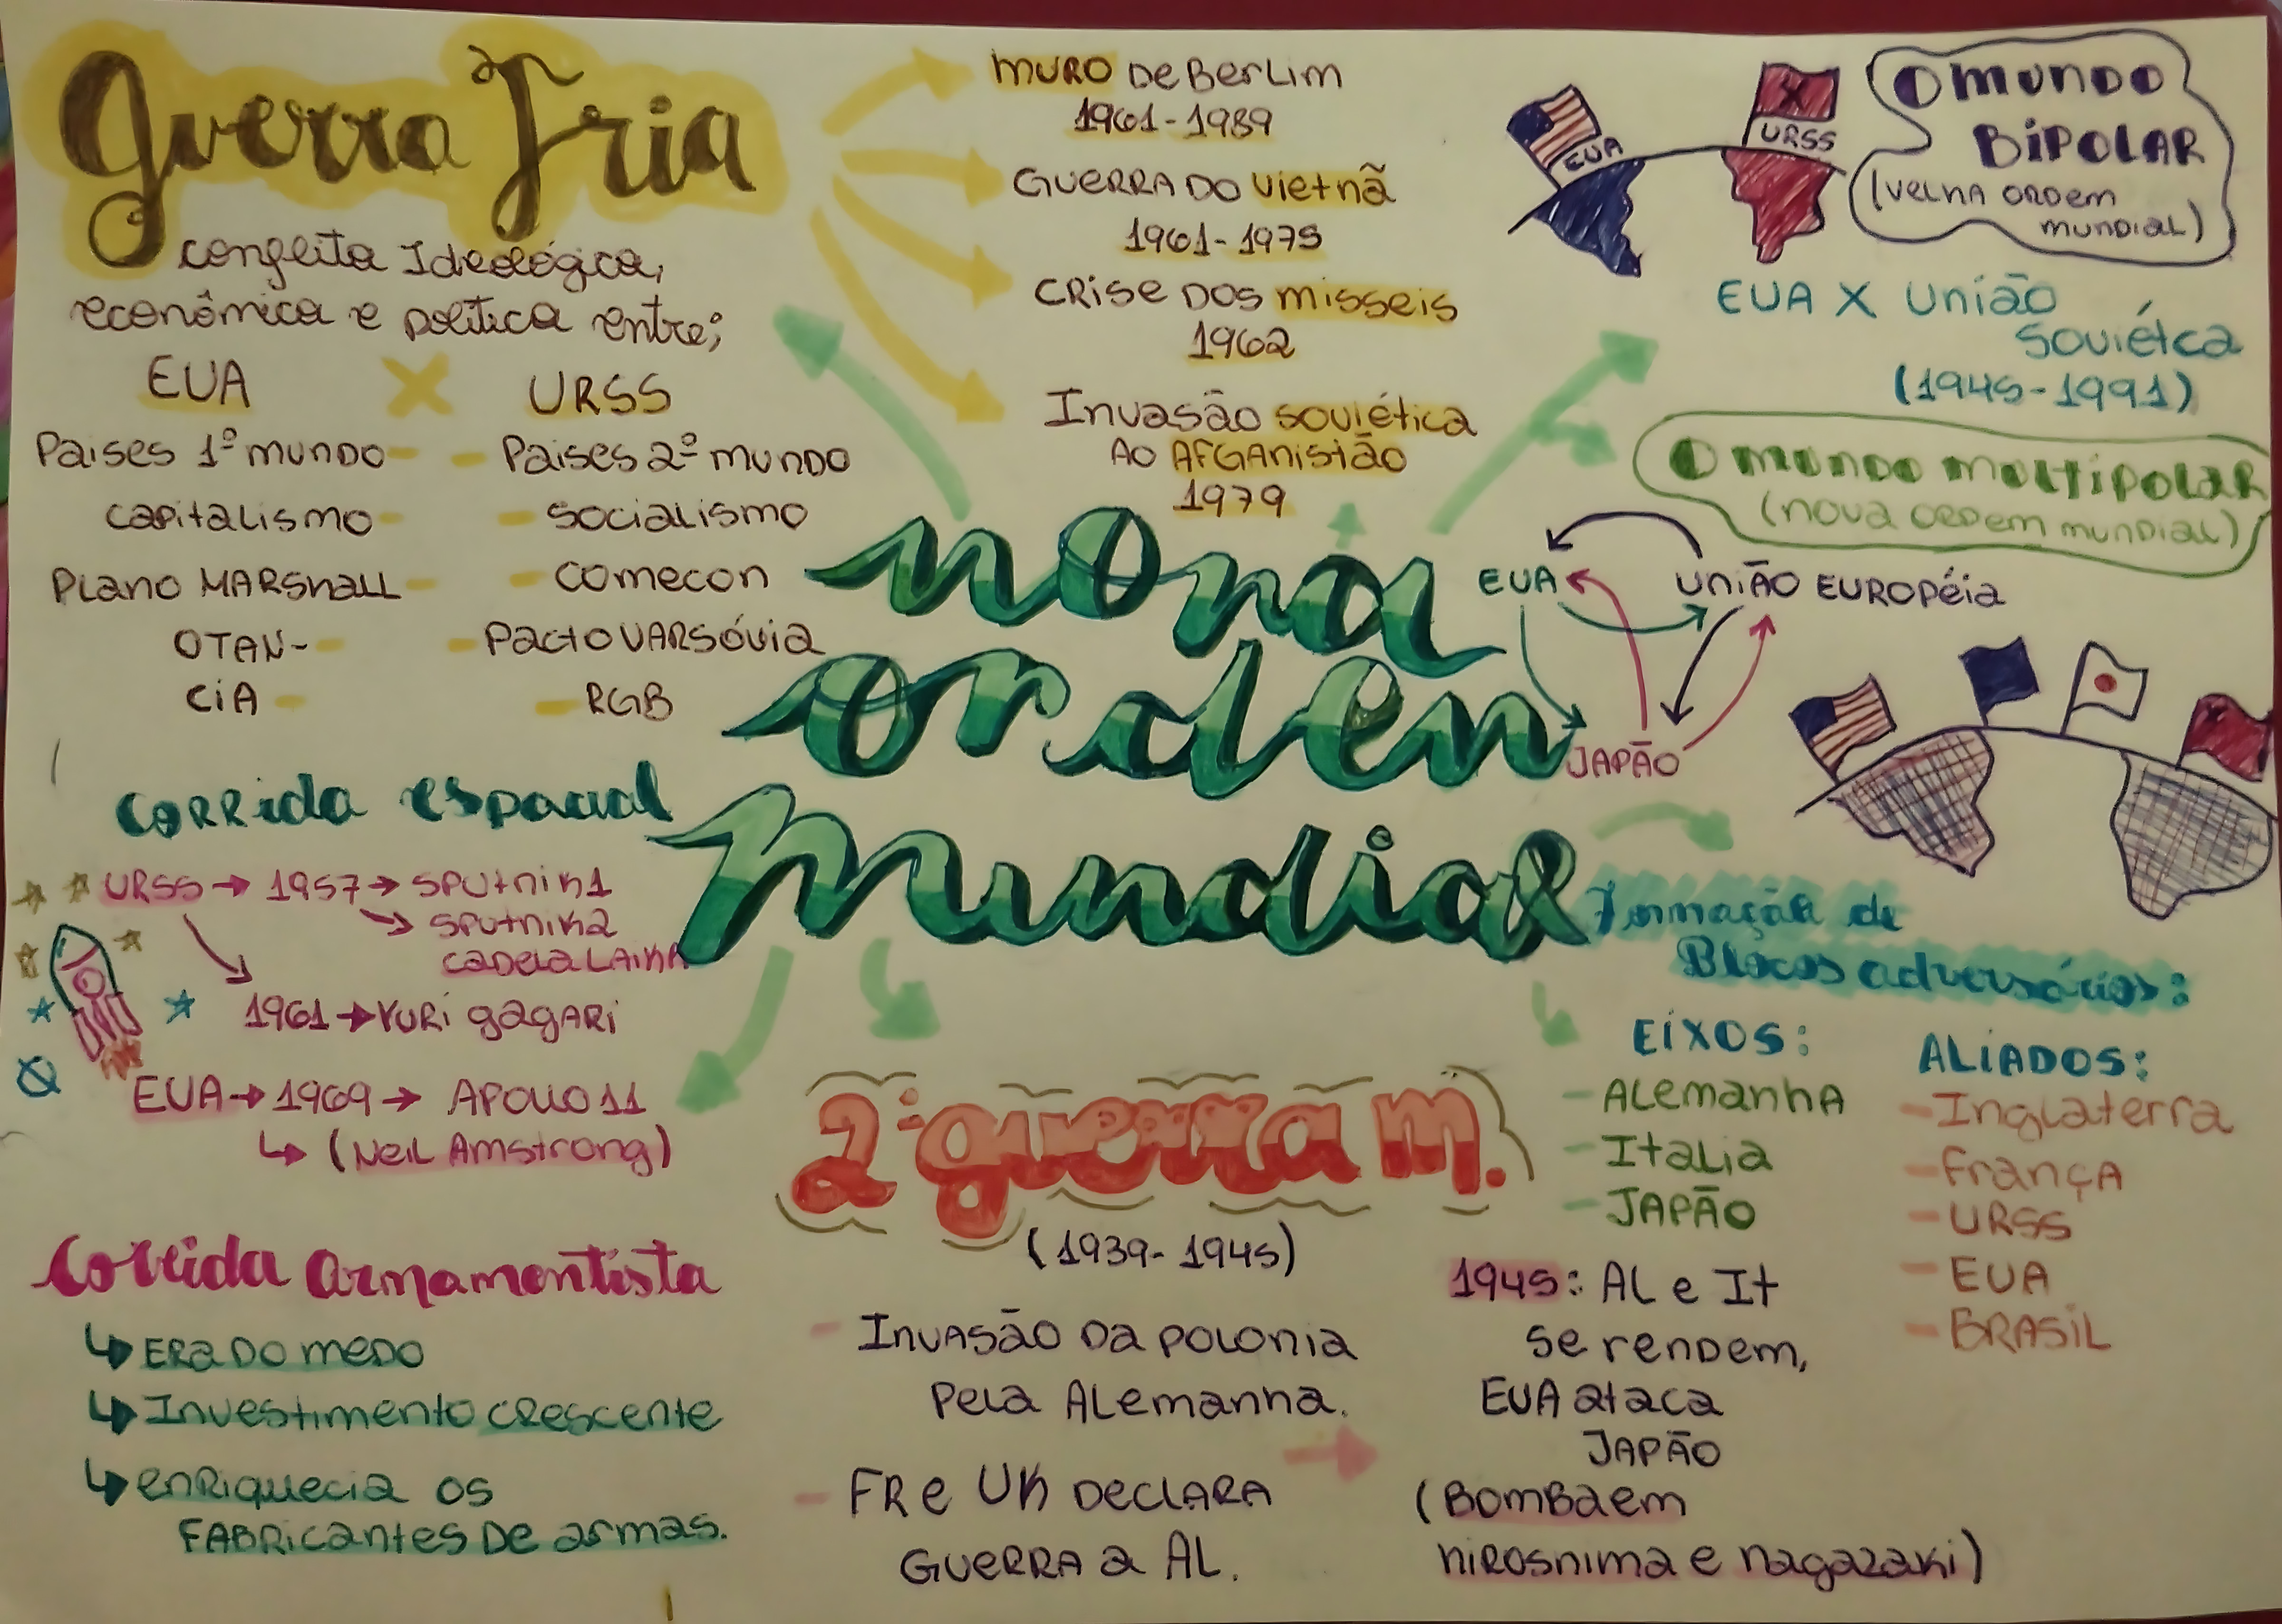 Guerra Fria
conflito Ideológica,
econômica e política entre;
EUA X URSS
Paises 1º mundo - - Paises 2º mundo
capitalismo - - socialismo
Plano MARSHALL - - comecon
OTAN - - Pacto VARSÓVIA
CIA - - RGB
MURO De Berlim
1961-1989
GUERRA DO Vietnã
1961-1975
CRise DOS misseis
1962
Invasão soviética
AO AFGAnistão
1979
EUA
URSS
O mundo
BiPOLAR
(velha ordem
mundial)
EUA X União
Soviétca
(1945-1991)
O mundo multipolar
(nova ordem mundial)
EUA
UNIÃO EUROPéia
JAPÃO
nova
orden
Mundial
Corrida espacial
URSS → 1957 → SPUtnik1
→ SPUtnik2
cadela LAIKA
1961 → YURi gagARi
EUA → 1969 → APOLLO 11
↳ (Neil Amstrong)
Corrida armamentista
↳ ERA DO meDO
↳ Investimento crescente
↳ enriquecia os
FABRicantes De armas.
2ª guerra m.
(1939-1945)
- Invasão DA POLONIA
Pela Alemanha.
- FR e UK DECLARA
GUERRA a AL.
1945: AL e It
se rendem,
EUA ataca
JAPÃO
(BOMBA em
hirosHima e nagazaki)
Formação de
Blocos adversários:
EIXOS:
- ALemanhA
- ItaLia
- JAPÃO
ALIADOS:
- Inglaterra
- França
- URSS
- EUA
- BRASIL